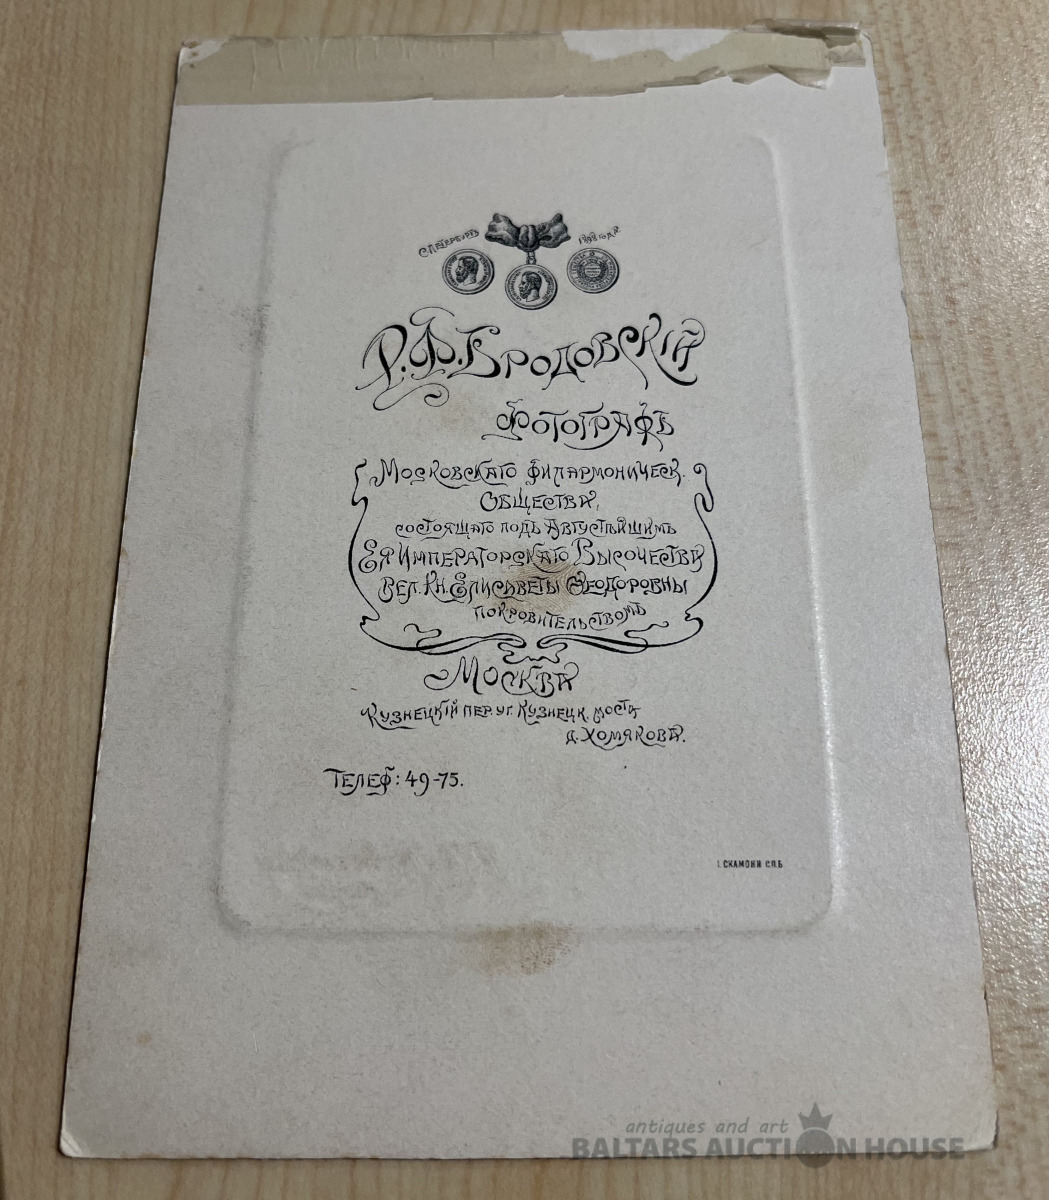 С.ПЕТЕРБУРГЪ
Р.Ф.БРОДОВСКІЙ
ФОТОГРАФЪ
МОСКОВСКАГО ФИЛАРМОНИЧЕСК.
ОБЩЕСТВА,
СОСТОЯЩАГО ПОДЪ АВГУСТѢЙШИМЪ
ЕЯ ИМПЕРАТОРСКАГО ВЫСОЧЕСТВА
ВЕЛ.КН.ЕЛИСАВЕТЫ ѲЕОДОРОВНЫ
ПОКРОВИТЕЛЬСТВОМЪ
МОСКВА
КУЗНЕЦКІЙ ПЕР. УГ. КУЗНЕЦК. МОСТА
Д.ХОМЯКОВА.
ТЕЛЕФ: 49-75.
І.СКАМОНИ С.П.Б
antiques and art
BALTARS AUCTION HOUSE